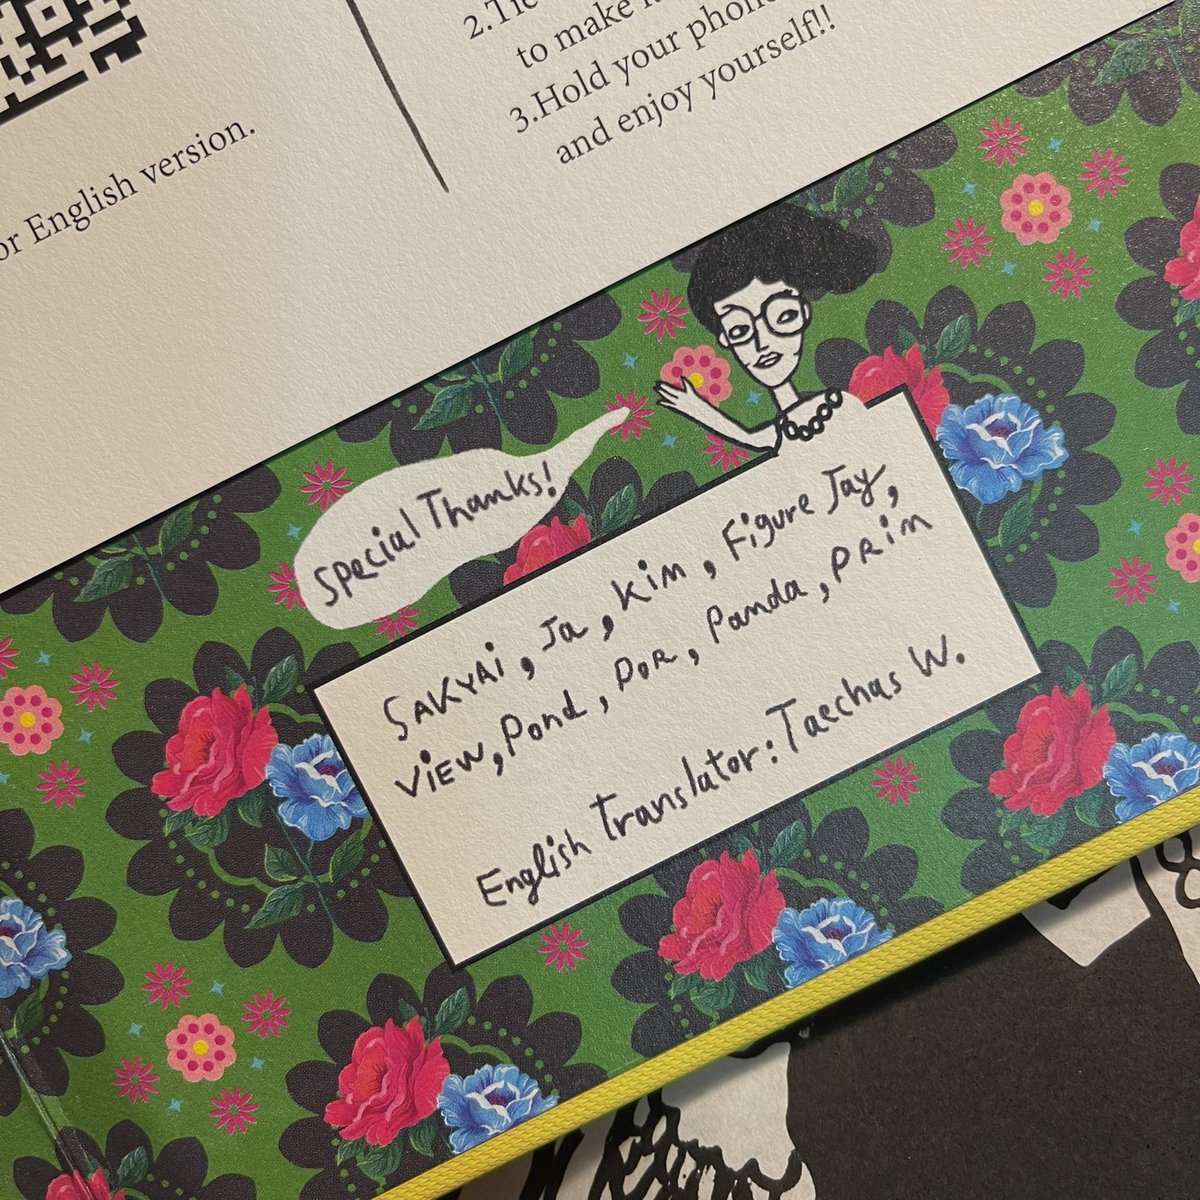 or English version.
2.Tie
to make it
3.Hold your phone
and enjoy yourself!!
Special Thanks!
SAKYAI, Ja, Kim, Figure Jay,
VIEW, Pond, DOR, Panda, PRIM
English Translator: Taechas W.